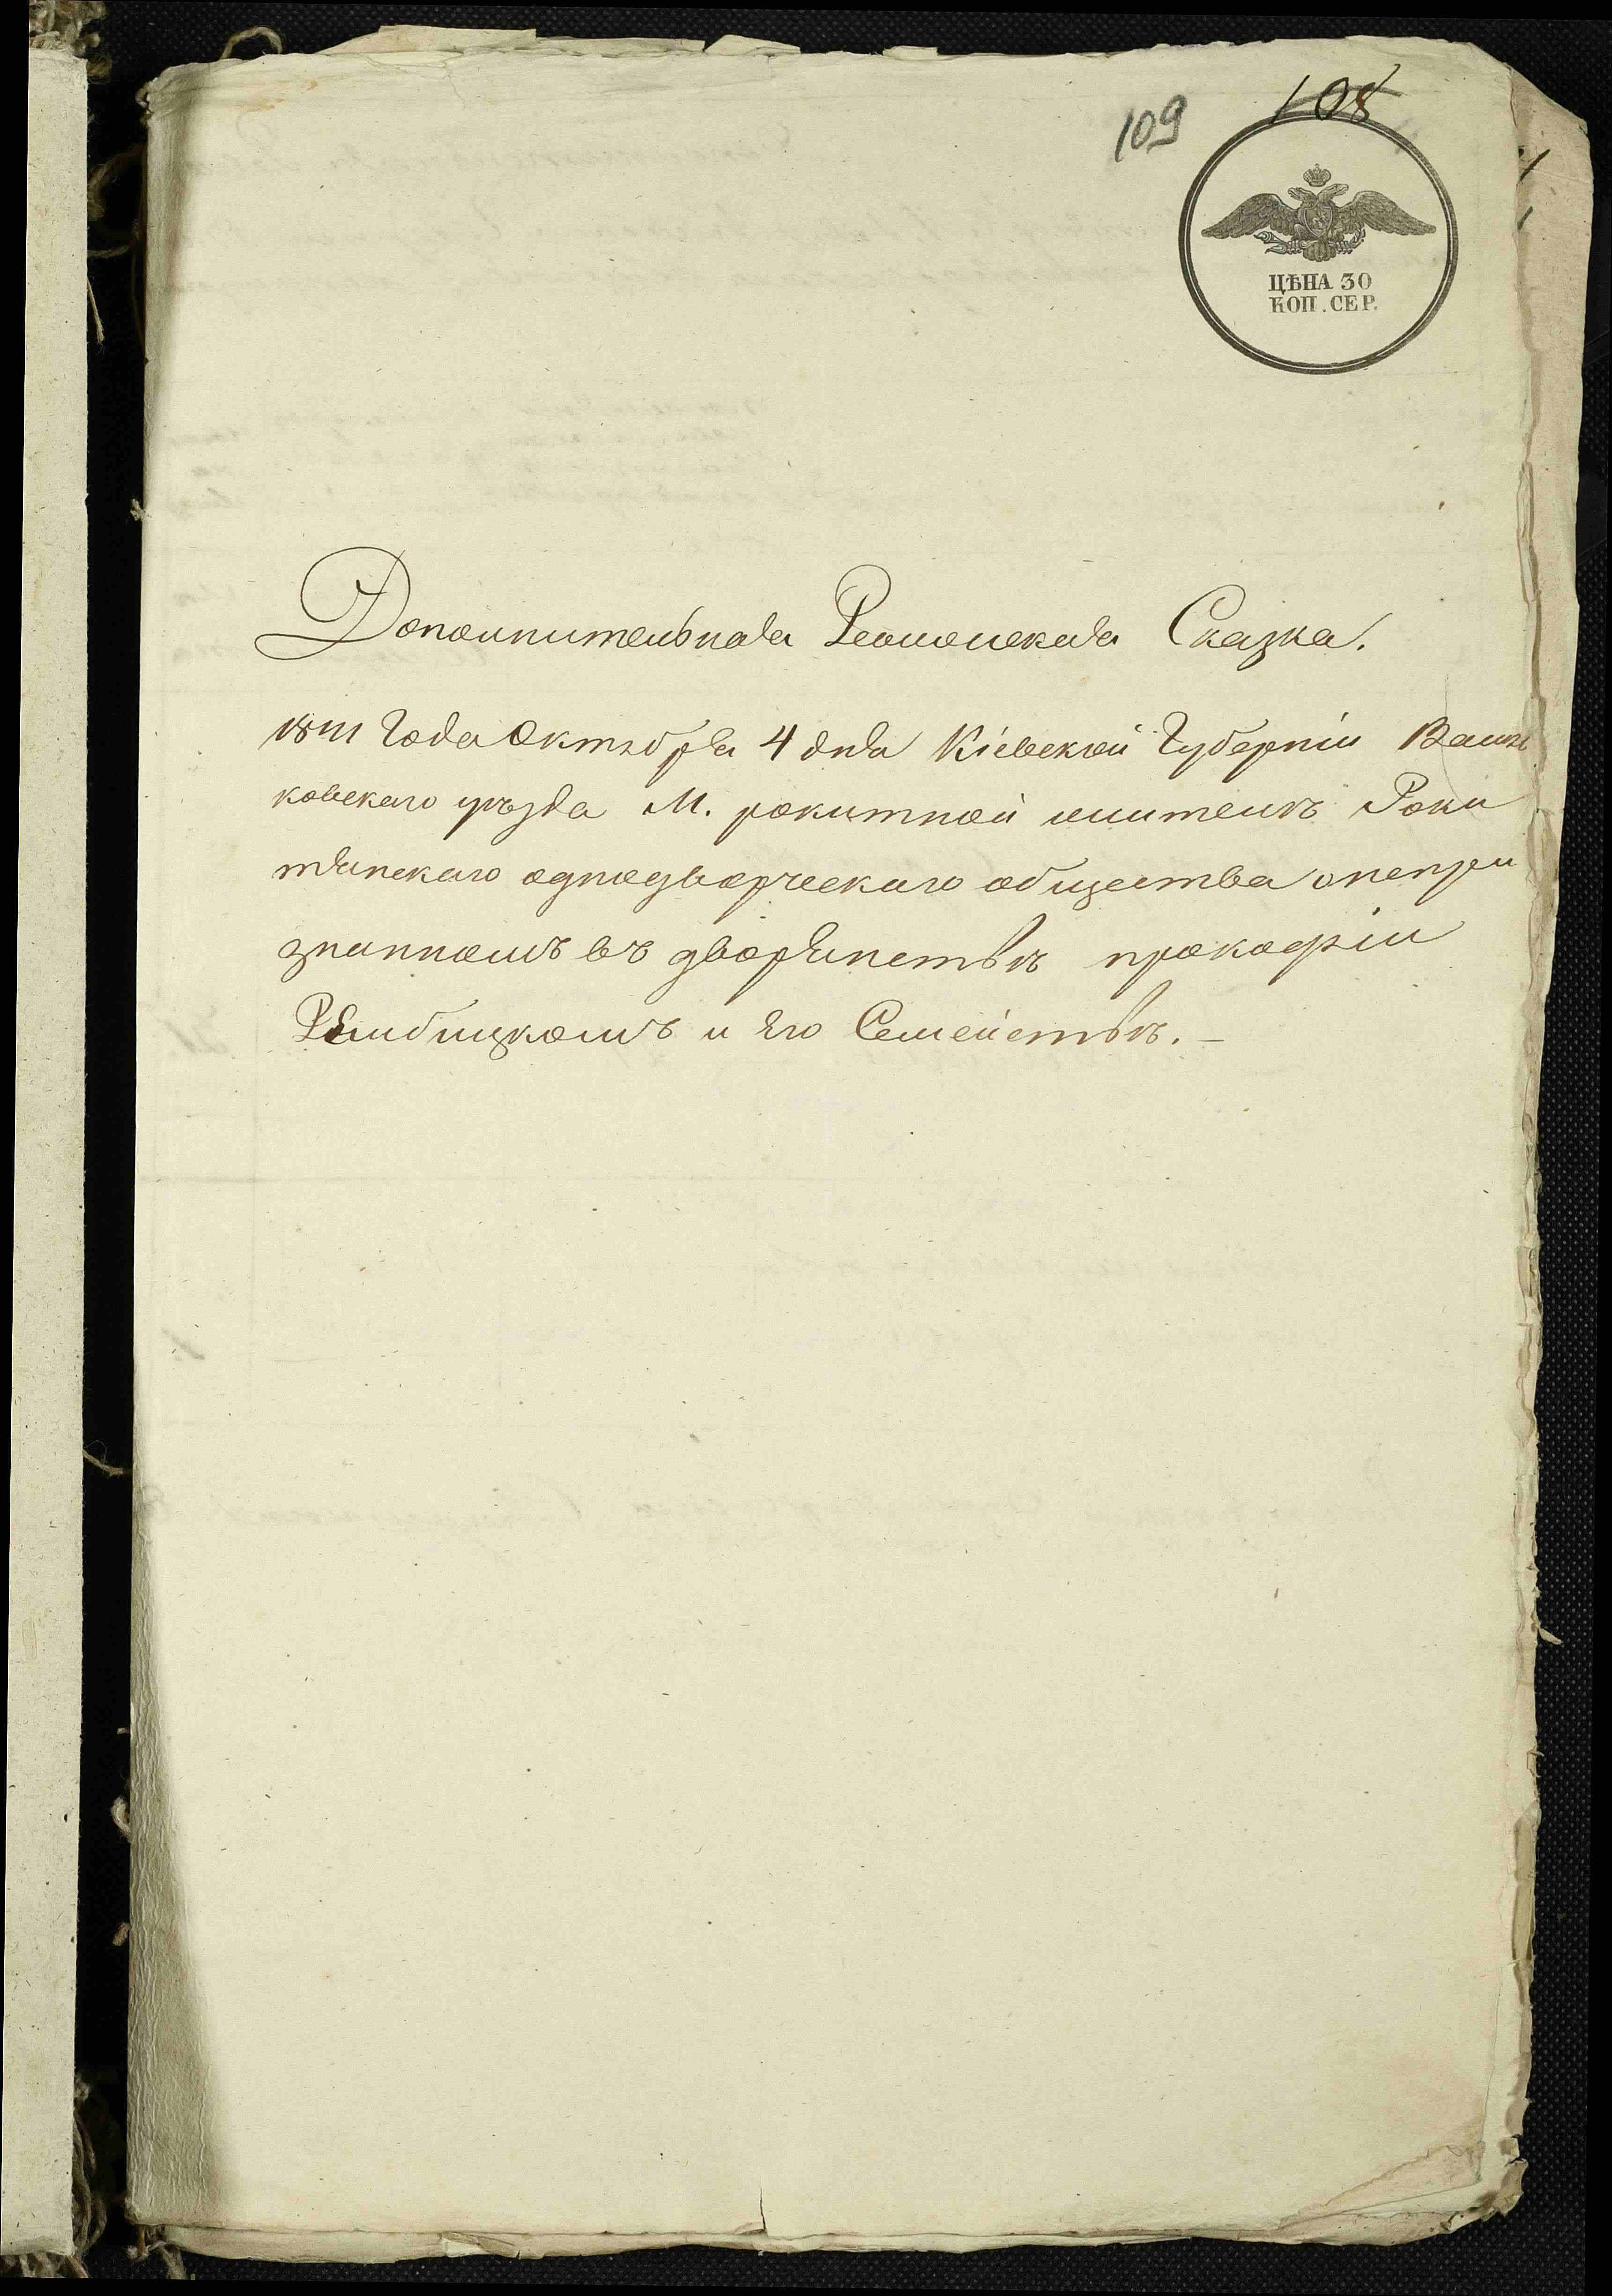 109
108
ЦѢНА 30
КОП. СЕР.
Дополнительная Ревизская Сказка.
Года Октября 4 дня Кіевской Губерніи Василь
ковскаго уѣзда М. рокитной жителѣ Роки
тянскаго однодворческаго общества онепри
знанномъ въ дворянствѣ прокофіи
Рембицкомъ и Его Семействѣ. –